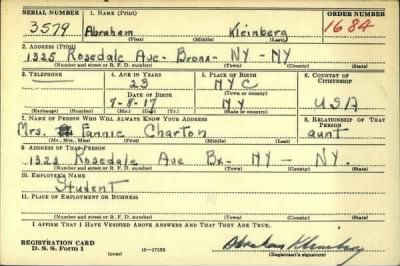 SERIAL NUMBER 1. NAME (Print) ORDER NUMBER
3579 Abraham Kleinberg 1684
(First) (Middle) (Last)
2. ADDRESS (Print)
1325 Rosedale Ave - Bronx - NY - NY
(Number and street or R. F. D. number) (Town) (County) (State)
3. TELEPHONE 4. AGE IN YEARS 5. PLACE OF BIRTH 6. COUNTRY OF CITIZENSHIP
23 NYC
DATE OF BIRTH (Town or county)
7-8-17 NY USA
(Exchange) (Number) (Mo.) (Day) (Yr.) (State or country)
7. NAME OF PERSON WHO WILL ALWAYS KNOW YOUR ADDRESS 8. RELATIONSHIP OF THAT PERSON
Mrs. Fannie Charton aunt
(Mr., Mrs., Miss) (First) (Middle) (Last)
9. ADDRESS OF THAT PERSON
1325 Rosedale Ave Bx - NY - NY.
(Number and street or R. F. D. number) (Town) (County) (State)
10. EMPLOYER'S NAME
Student
11. PLACE OF EMPLOYMENT OR BUSINESS
(Number and street or R. F. D. number) (Town) (County) (State)
I AFFIRM THAT I HAVE VERIFIED ABOVE ANSWERS AND THAT THEY ARE TRUE.
REGISTRATION CARD
D. S. S. Form 1 (over) 16-17105 Abraham Kleinberg
(Registrant's signature)